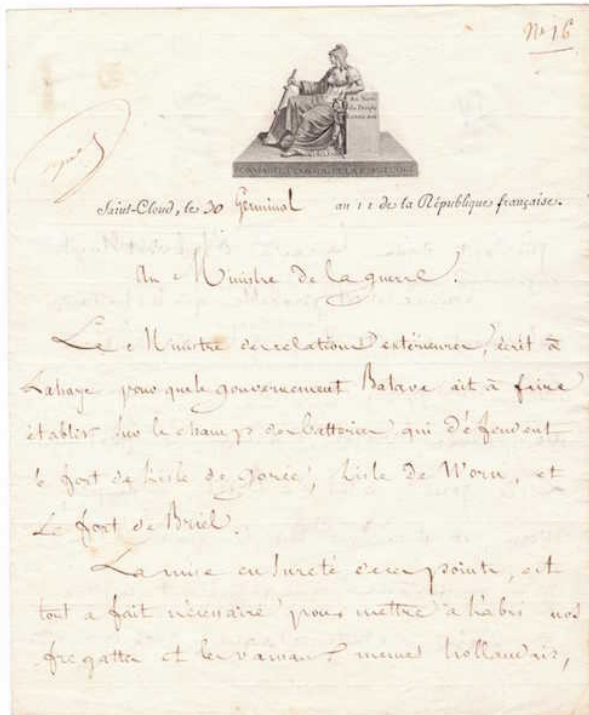 Nº 16
Au Nom
du Peuple
Français
BONAPARTE 1er CONSUL DE LA RÉPUBLIQUE
Saint-Cloud, le 30 Germinal an 11 de la République française.
Au Ministre de la guerre.
Le Ministre des relations extérieures, écrit à
Lahaye pour que le gouvernement Batave ait à faire
établir sur le champ des batteries qui défendent
le fort de l'isle de gorée, l'isle de Worn, et
Le fort de Briel.
La mise en sureté de ces points, est
tout a fait nécessaire pour mettre à l'abri nos
fregattes et les vaisseaux memes hollandais,